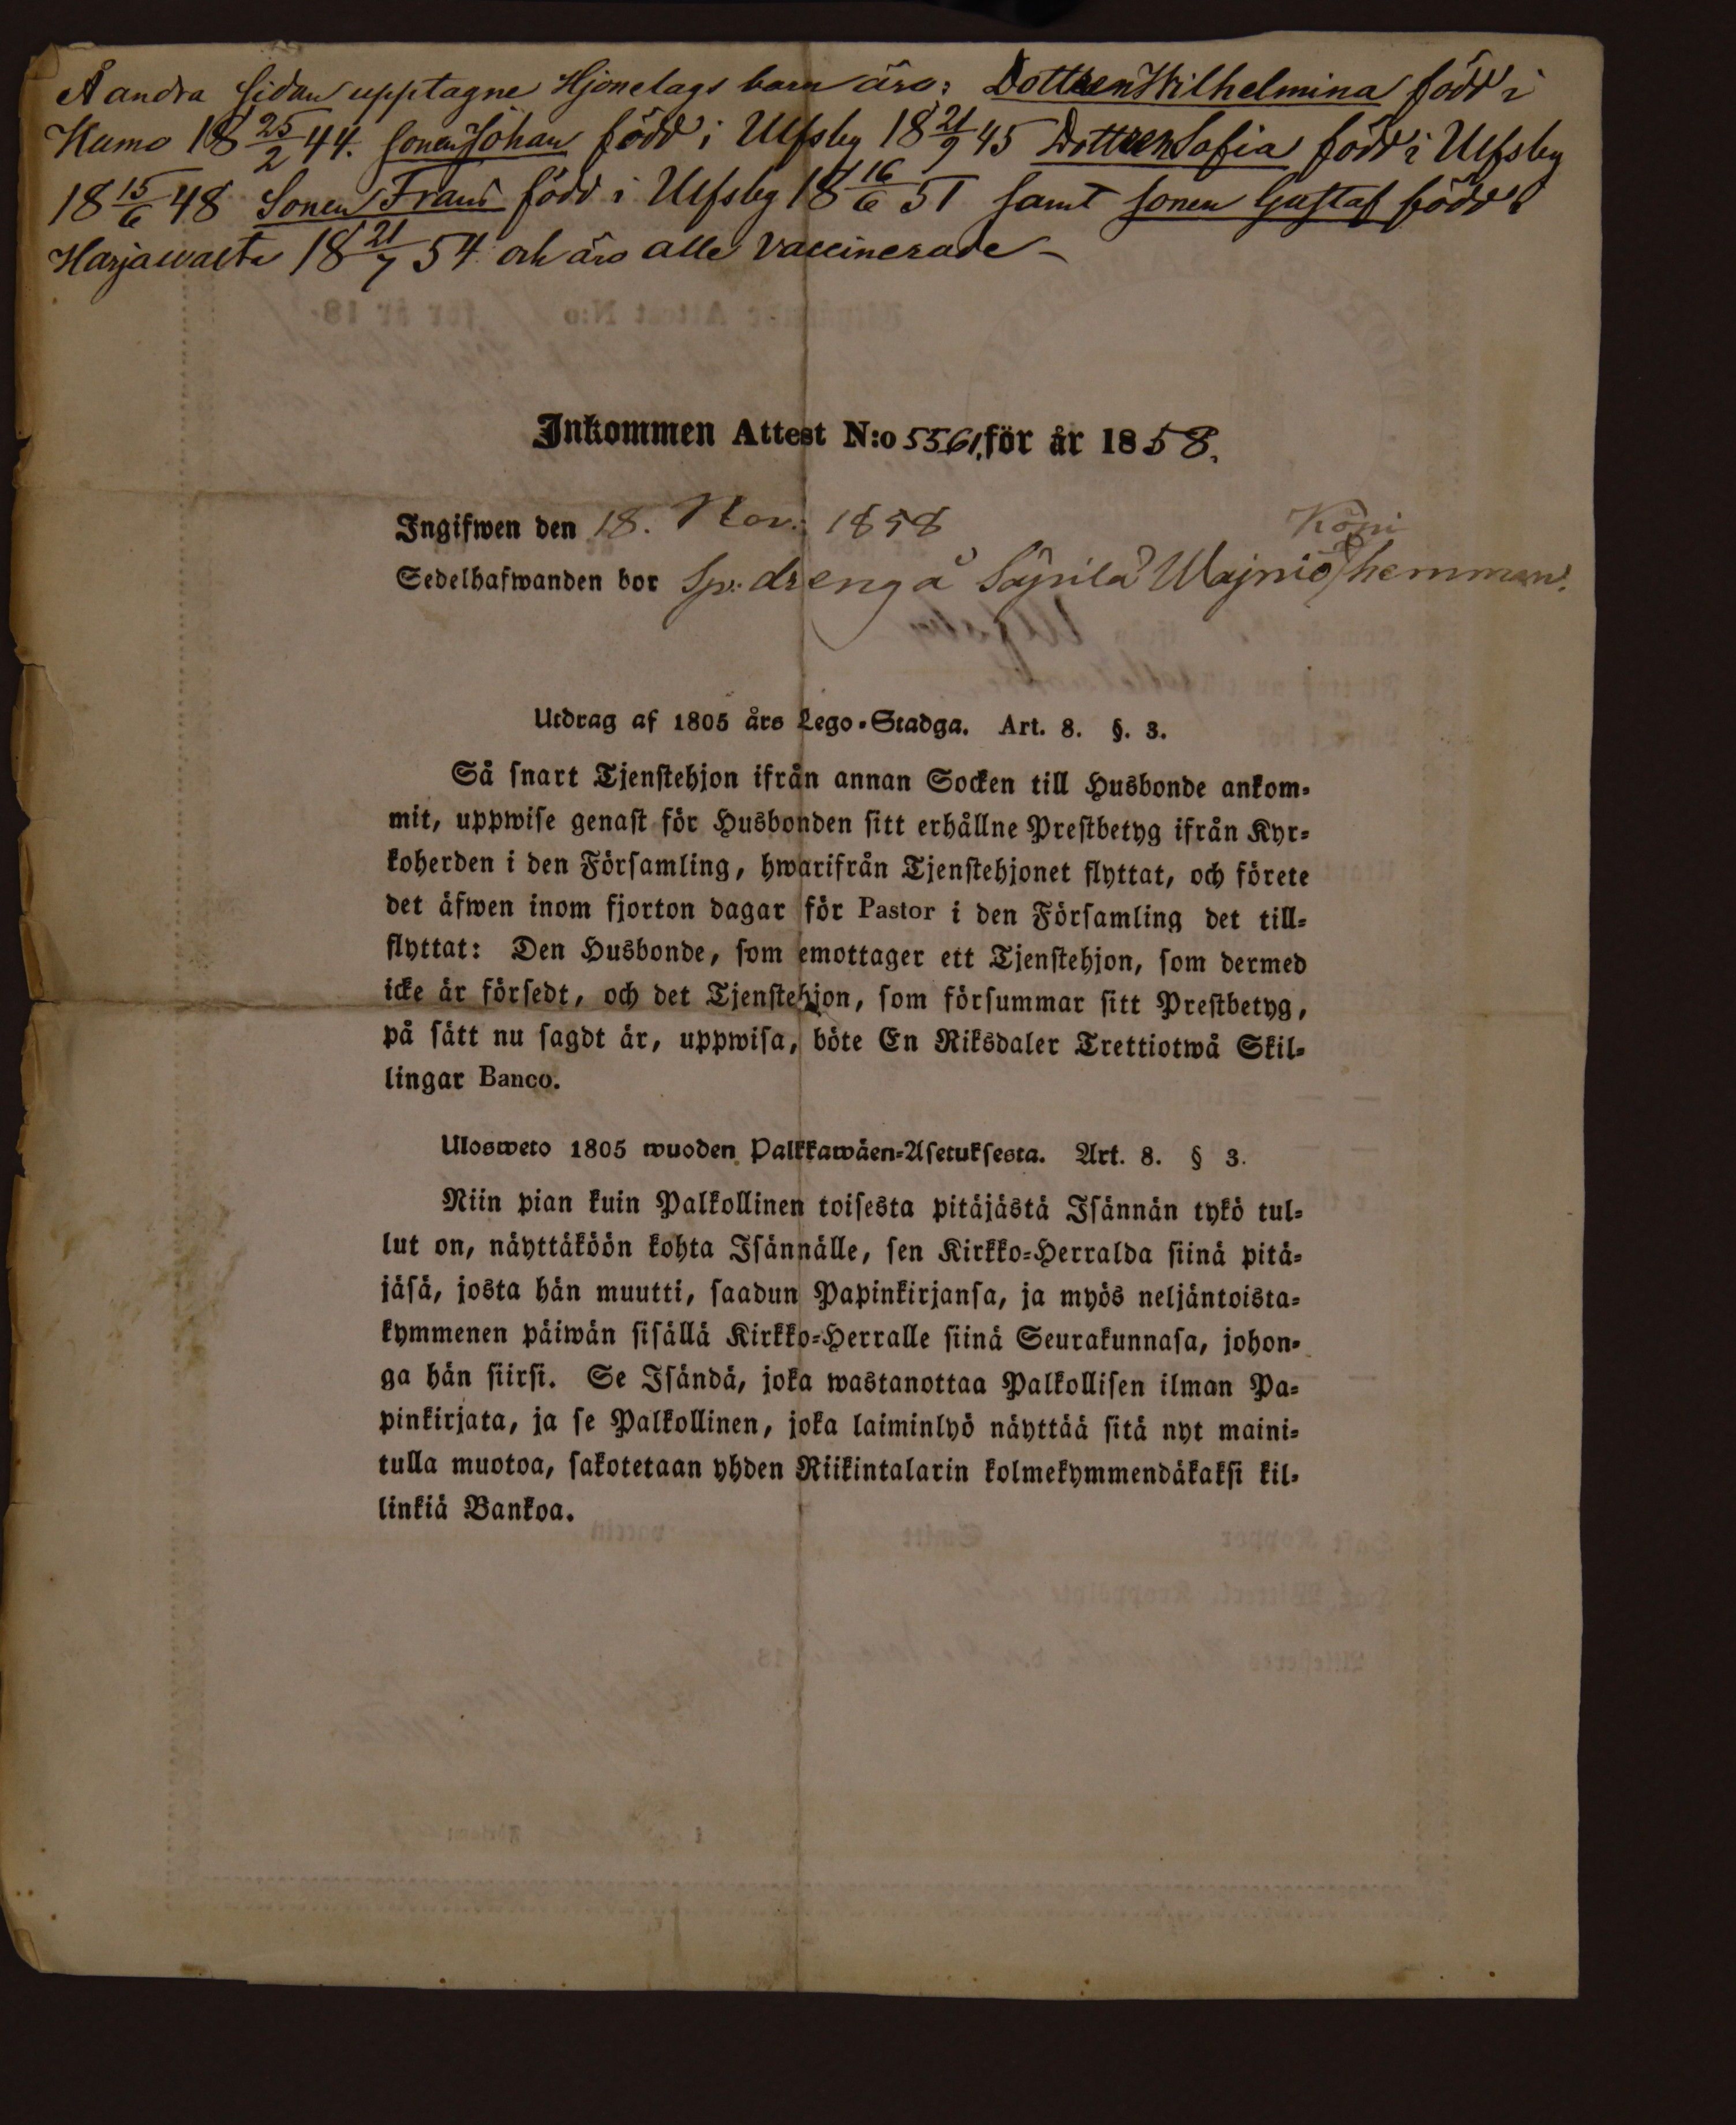 Å andra sidan upptagne Hjonelags barn äro: Dottren Wilhelmina född i
Kumo 18 25/2 44. sonen Johan född i Ulfsby 18 21/9 45 Dottren Sofia född i Ulfsby
18 15/6 48 Sonen Frans född i Ulfsby 18 16/6 51 samt sonen Gustaf född i
Harjawalta 18 21/7 54 och äro alla vaccinerade –
Inkommen Attest N:o 5561. för år 1858.
Ingifwen den 18. Nov. 1858
Köni
Sedelhafwanden bor Sp: dreng å Säpilä Wajniö hemman.
Utdrag af 1805 års Lego-Stadga. Art. 8. §. 3.
Så snart Tjenstehjon ifrån annan Socken till Husbonde ankom-
mit, uppwise genast för Husbonden sitt erhållne Prestbetyg ifrån Kyr-
koherden i den Församling, hwarifrån Tjenstehjonet flyttat, och förete
det äfwen inom fjorton dagar för Pastor i den Församling det till-
flyttat: Den Husbonde, som emottager ett Tjenstehjon, som dermed
icke är försedt, och det Tjenstehjon, som försummar sitt Prestbetyg,
på sätt nu sagdt är, uppwisa, böte En Riksdaler Trettiotwå Skil-
lingar Banco.
Ulosweto 1805 wuoden Palkkawäen-Asetuksesta. Art. 8. § 3.
Niin pian kuin Palkollinen toisesta pitäjästä Isännän tykö tul-
lut on, näyttäköön kohta Isännälle, sen Kirkko-Herralda siinä pitä-
jäsä, josta hän muutti, saadun Papinkirjansa, ja myös neljäntoista-
kymmenen päiwän sisällä Kirkko-Herralle siinä Seurakunnasa, johon-
ga hän siirsi. Se Isändä, joka wastanottaa Palkollisen ilman Pa-
pinkirjata, ja se Palkollinen, joka laiminlyö näyttää sitä nyt maini-
tulla muotoa, sakotetaan yhden Riikintalarin kolmekymmendäkaksi kil-
linkiä Bankoa.